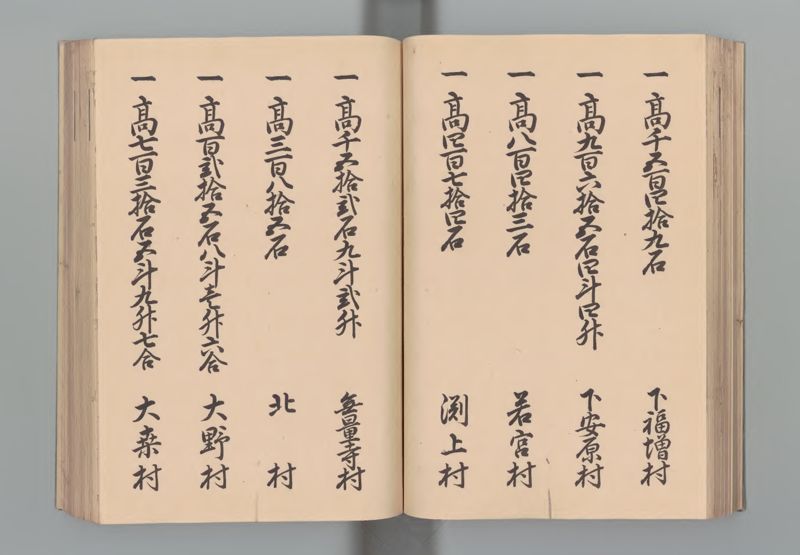 一 高千五百四拾九石 下福増村
一 高九百六拾五石四斗四升 下安原村
一 高八百四拾三石 若宮村
一 高四百七拾四石 渕上村
一 高千五拾弐石九斗弐升 無量寺村
一 高三百八拾五石 北村
一 高百弐拾五石八斗壱升六合 大野村
一 高七百三拾石五斗九升七合 大桑村